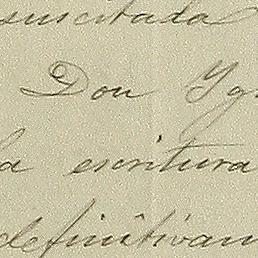 suscitada
Don Yg
la escritura
definitivam